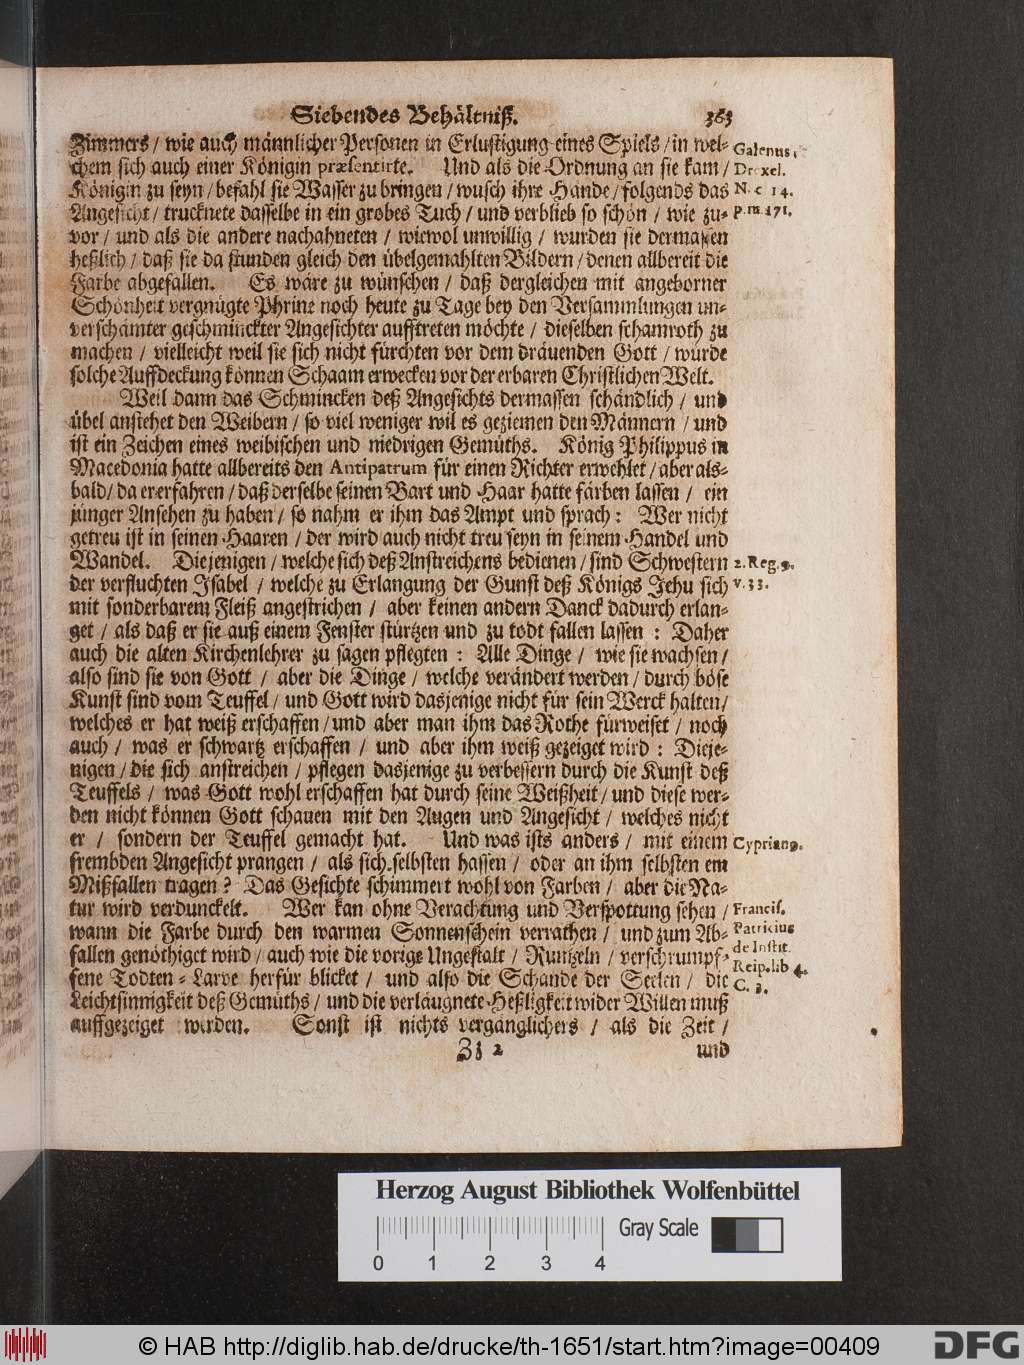 Siebendes Behältniß. 363
Zimmers / wie auch männlicher Personen in Erlustigung eines Spiels / in wel-
chem sich auch einer Königin præsentirte. Und als die Ordnung an sie kam /
Königin zu seyn / befahl sie Wasser zu bringen / wusch ihre Hände / folgends das
Angesicht / trucknete dasselbe in ein grobes Tuch / und verblieb so schön / wie zu-
vor / und als die andere nachahneten / wiewol unwillig / wurden sie dermassen
heßlich / daß sie da stunden gleich den übelgemahlten Bildern / denen allbereit die
Farbe abgefallen. Es wäre zu wünschen / daß dergleichen mit angeborner
Schönheit vergnügte Phrine noch heute zu Tage bey den Versammlungen un-
verschämter geschminckter Angesichter aufftreten möchte / dieselben schamroth zu
machen / vielleicht weil sie sich nicht fürchten vor dem dräuenden Gott / würde
solche Auffdeckung können Schaam erwecken vor der erbaren Christlichen Welt.
Weil dann das Schmincken deß Angesichts dermassen schändlich / und
übel anstehet den Weibern / so viel weniger wil es geziemen den Männern / und
ist ein Zeichen eines weibischen und niedrigen Gemüths. König Philippus in
Macedonia hatte allbereits den Antipatrum für einen Richter erwehlet / aber als-
bald / da er erfahren / daß derselbe seinen Bart und Haar hatte färben lassen / ein
jünger Ansehen zu haben / so nahm er ihm das Ampt und sprach: Wer nicht
getreu ist in seinen Haaren / der wird auch nicht treu seyn in seinem Handel und
Wandel. Diejenigen / welche sich deß Anstreichens bedienen / sind Schwestern
der verfluchten Isabel / welche zu Erlangung der Gunst deß Königs Jehu sich
mit sonderbarem Fleiß angestrichen / aber keinen andern Danck dadurch erlan-
get / als daß er sie auß einem Fenster stürtzen und zu todt fallen lassen : Daher
auch die alten Kirchenlehrer zu sagen pflegten : Alle Dinge / wie sie wachsen /
also sind sie von Gott / aber die Dinge / welche verändert werden / durch böse
Kunst sind vom Teuffel / und Gott wird dasjenige nicht für sein Werck halten /
welches er hat weiß erschaffen / und aber man ihm das Rothe fürweiset / noch
auch / was er schwartz erschaffen / und aber ihm weiß gezeiget wird : Dieje-
nigen / die sich anstreichen / pflegen dasjenige zu verbessern durch die Kunst deß
Teuffels / was Gott wohl erschaffen hat durch seine Weißheit / und diese wer-
den nicht können Gott schauen mit den Augen und Angesicht / welches nicht
er / sondern der Teuffel gemacht hat. Und was ists anders / mit einem
frembden Angesicht prangen / als sich selbsten hassen / oder an ihm selbsten ein
Mißfallen tragen? Das Gesichte schimmert wohl von Farben / aber die Na-
tur wird verdunckelt. Wer kan ohne Verachtung und Verspottung sehen /
wann die Farbe durch den warmen Sonnenschein verrathen / und zum Ab-
fallen genöthiget wird / auch wie die vorige Ungestalt / Runtzeln / verschrumpf-
fene Todten-Larve herfür blicket / und also die Schande der Seelen / die
Leichtsinnigkeit deß Gemüths / und die verläugnete Heßligkeit wider Willen muß
auffgezeiget werden. Sonst ist nichts vergänglichers / als die Zeit /
Zz 2 und
Galenus.
Drexel.
N. c 14.
p. m. 171.
2. Reg. 9.
v. 33.
Cyprian9.
Francis.
Patricius
de Instit.
Reip. lib 4.
C. 3.
Herzog August Bibliothek Wolfenbüttel
0 1 2 3 4
Gray Scale
© HAB http://diglib.hab.de/drucke/th-1651/start.htm?image=00409
DFG